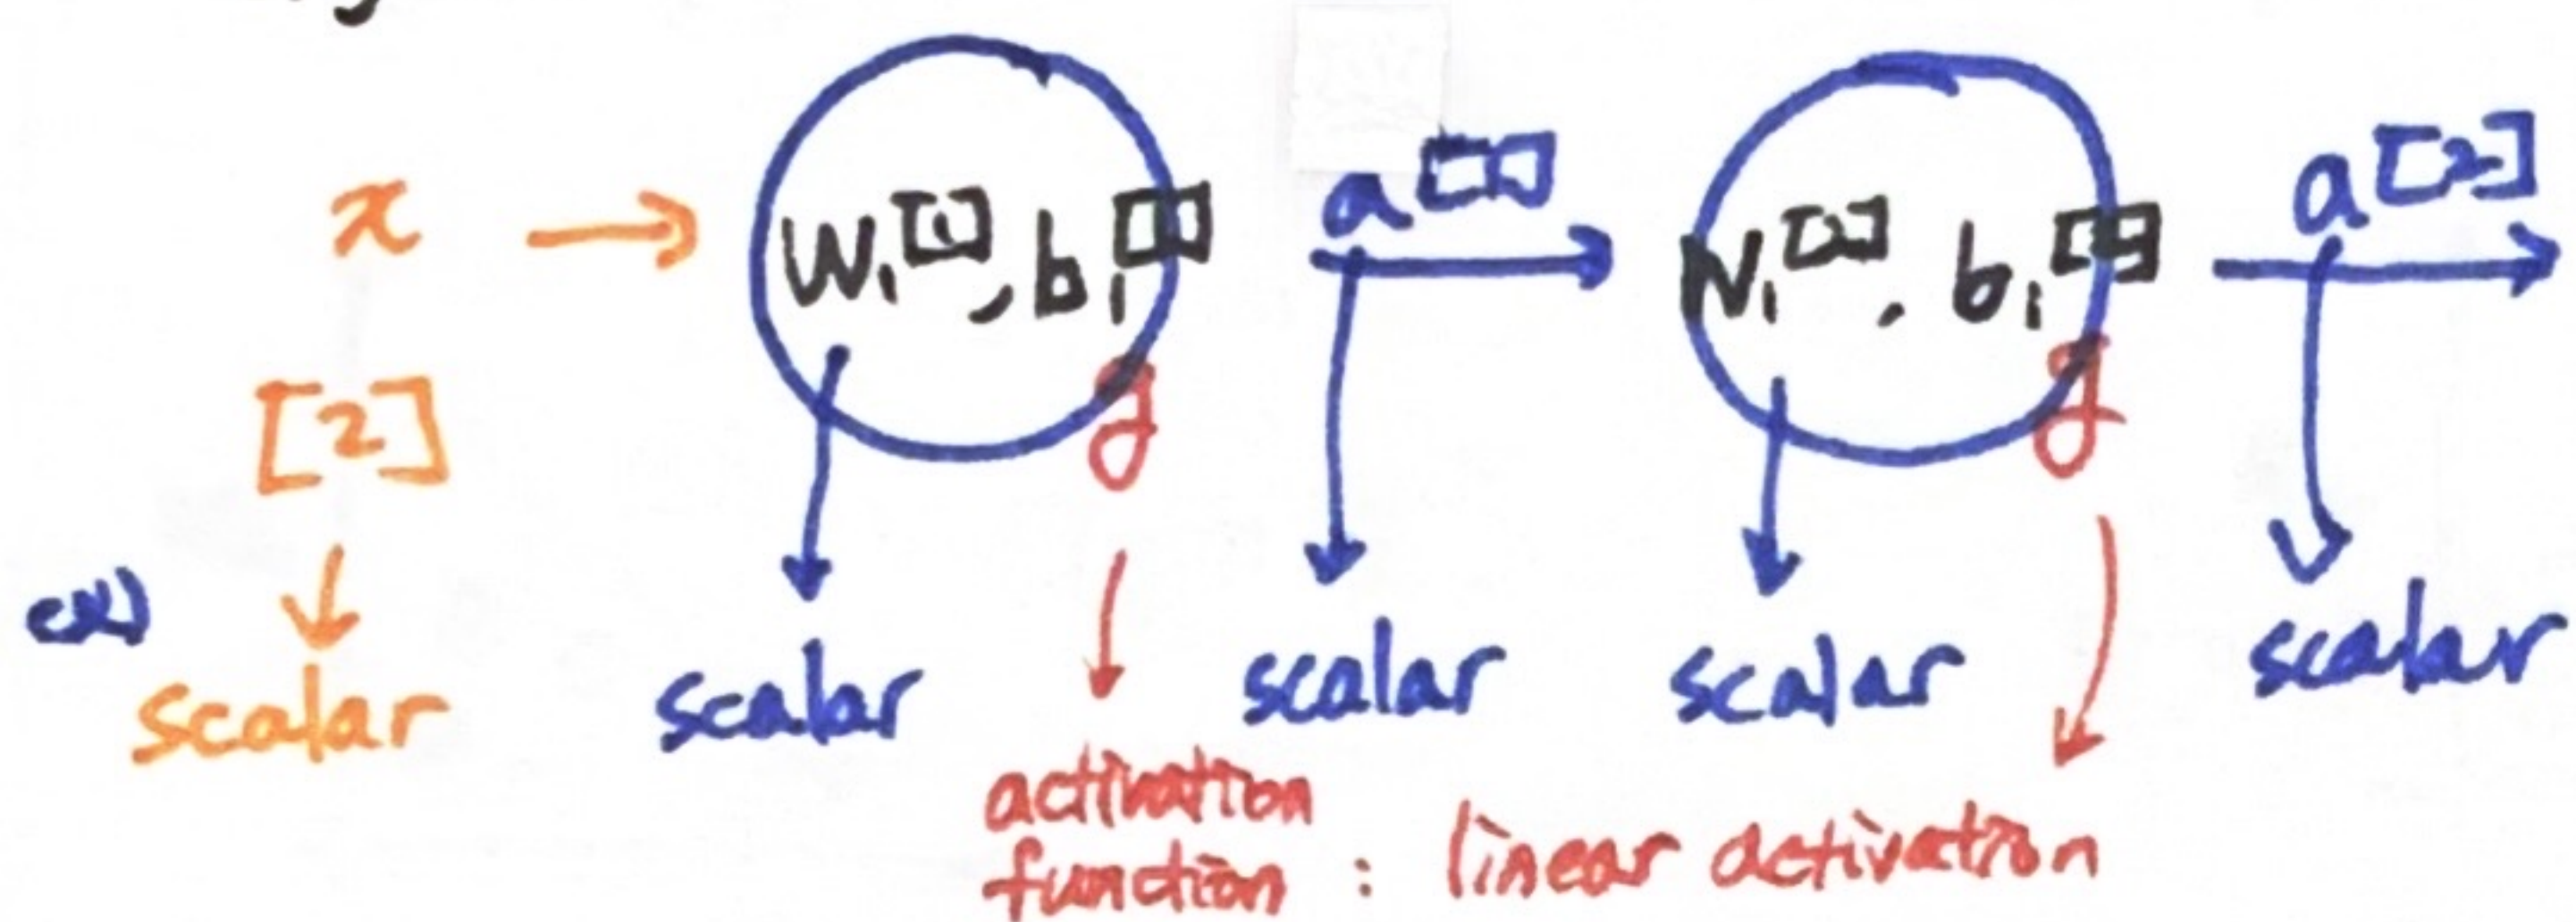 x → W₁[1], b₁[1] a[1] → W₁[2], b₁[2] a[2] →
g g
[2]
ex)
scalar scalar scalar scalar scalar
activation
function : linear activation